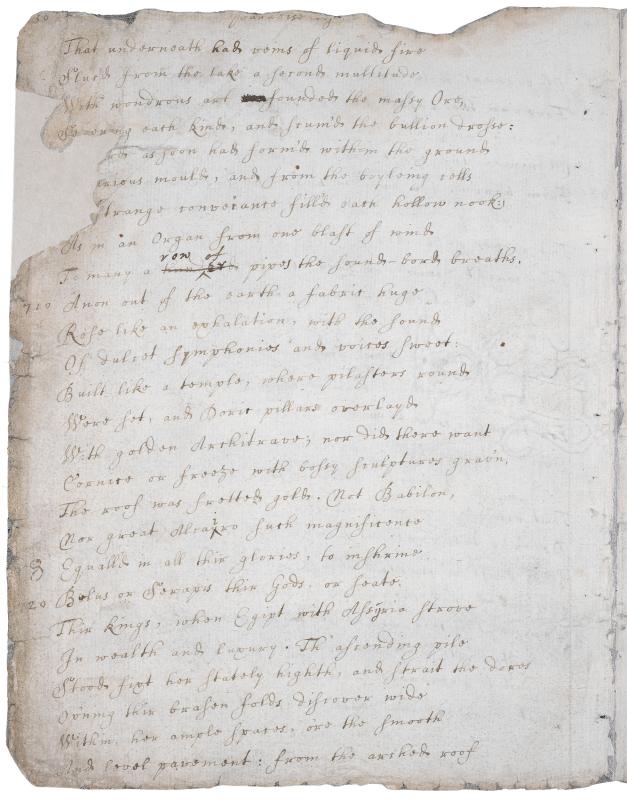 30 Paradise
That underneath had veins of liquid fire
Sluc'd from the lake a second multitude
With wondrous art founded the massy Ore,
Severing each kind, and scum'd the bullion drosse:
as soon had form'd within the ground
arious mould, and from the boyleing cells
trange conveiance fill'd each hollow nook:
As in an Organ from one blast of wind
T many a row of pipes the sound-bord breaths.
710 Anon out of the earth a fabric huge
Rose like an exhalation, with the sound
Of dulcet symphonies and voices sweet:
Built like a temple, where pilasters round
Were set, and Doric pillars overlayd
With golden Architrave; nor did there want
Cornice or freeze with bossy sculptures grav'n,
The roof was fretted gold. Not Babilon,
Nor great Alcairo such magnificence
Equall'd in all thir glories, to inshrine
720 Belus or Serapis thir Gods, or seate
Thir Kings, when Egipt with Assyria strove
In wealth and luxury. Th' ascending pile
Stood fixt her stately highth, and strait the dores
Op'ning thir brasen folds discover wide
Within, her ample spaces, ore the smooth
And level pavement: from the arched roof